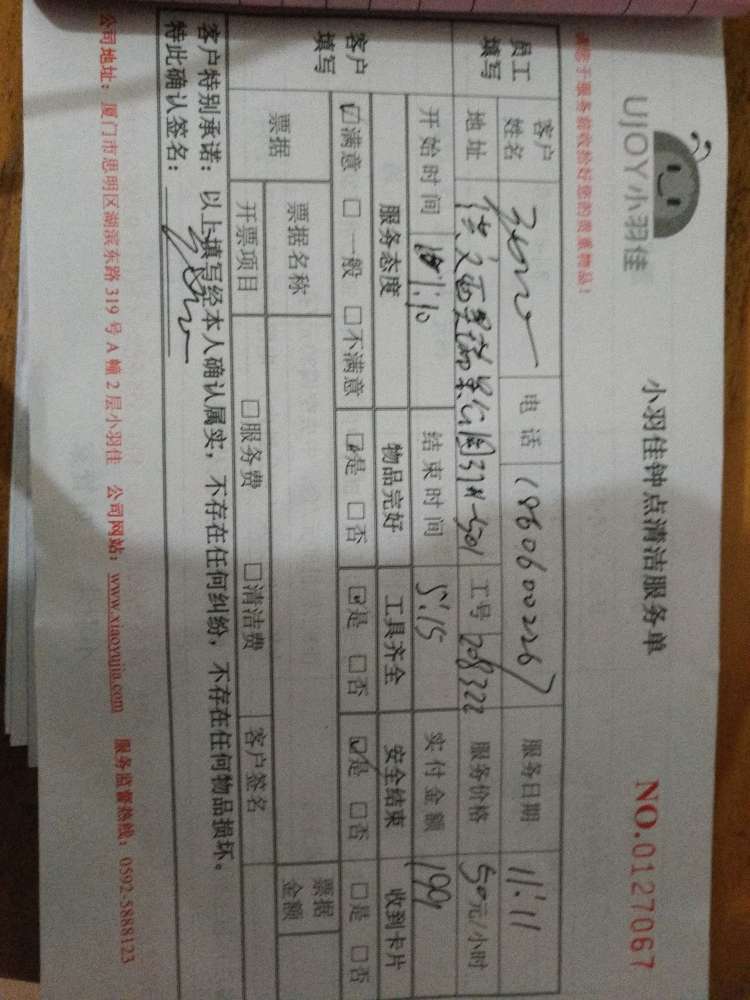 UJOY小羽佳
小羽佳钟点清洁服务单
NO.0127067
员工填写
客户姓名 电话 18606002267 服务日期 11:11
地址 工号 208322 服务价格 50元/小时
开始时间 1:10 结束时间 5:15 实付金额 199
客户填写
服务态度 物品完好 工具齐全 安全结束 收到卡片
☑满意 □一般 □不满意 ☑是 □否 ☑是 □否 ☑是 □否 □是 □否
票据 票据名称 票据金额
开票项目 □服务费 □清洁费 客户签名
客户特别承诺：以上填写经本人确认属实，不存在任何纠纷，不存在任何物品损坏。
特此确认签名：
公司地址：厦门市思明区湖滨东路 319 号 A 幢 2 层小羽佳 公司网站：www.xiaoyujia.com 服务监督热线：0592-5888123